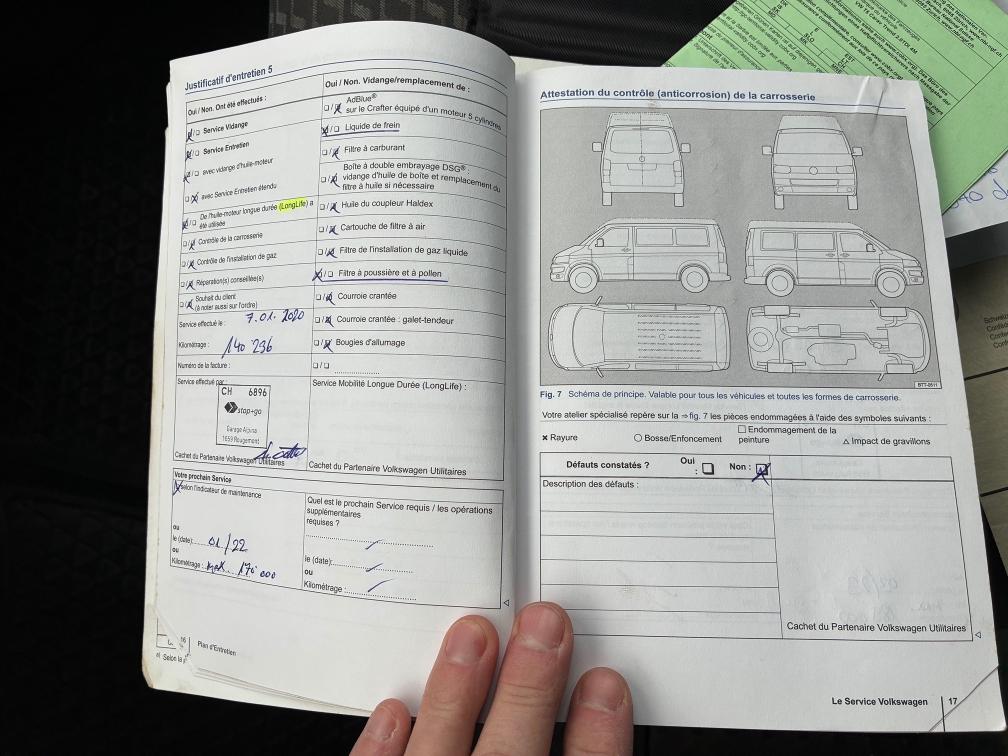 Justificatif d'entretien 5
Oui / Non. Ont été effectués :
Service Vidange
Service Entretien
avec vidange d'huile-moteur
avec Service Entretien étendu
De l'huile-moteur longue durée (LongLife) a
été utilisée
Contrôle de la carrosserie
Contrôle de l'installation de gaz
Réparation(s) conseillée(s)
Souhait du client
(à noter aussi sur l'ordre)
Service effectué le : 7.01.2020
Kilométrage : 140'236
Numéro de la facture :
Service effectué par :
CH 6896
stop+go
Garage Alpina
1659 Rougemont
Cachet du Partenaire Volkswagen Utilitaires
Oui / Non. Vidange/remplacement de :
AdBlue®
sur le Crafter équipé d'un moteur 5 cylindres
Liquide de frein
Filtre à carburant
Boîte à double embrayage DSG® :
vidange d'huile de boîte et remplacement du
filtre à huile si nécessaire
Huile du coupleur Haldex
Cartouche de filtre à air
Filtre de l'installation de gaz liquide
Filtre à poussière et à pollen
Courroie crantée
Courroie crantée : galet-tendeur
Bougies d'allumage
Service Mobilité Longue Durée (LongLife) :
Cachet du Partenaire Volkswagen Utilitaires
Votre prochain Service
selon l'indicateur de maintenance
ou
le (date): 01/22
ou
Kilométrage : max. 170 000
Quel est le prochain Service requis / les opérations
supplémentaires
requises ?
le (date):
ou
Kilométrage :
16
Plan d'Entretien
a) Selon la
Attestation du contrôle (anticorrosion) de la carrosserie
B7T-0511
Fig. 7 Schéma de principe. Valable pour tous les véhicules et toutes les formes de carrosserie.
Votre atelier spécialisé repère sur la ⇒ fig. 7 les pièces endommagées à l'aide des symboles suivants :
× Rayure
○ Bosse/Enfoncement
□ Endommagement de la
peinture
△ Impact de gravillons
Défauts constatés ?
Oui
:
Non :
Description des défauts :
Cachet du Partenaire Volkswagen Utilitaires
Le Service Volkswagen 17